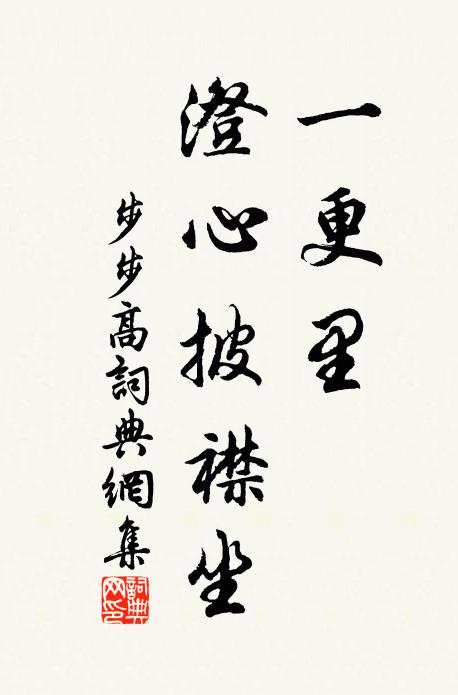 一更里
澄心披襟坐
步步高詞典網集
詞典網印